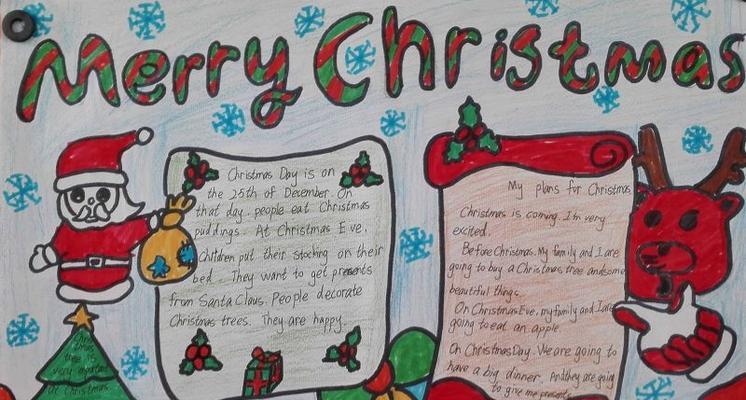 Merry Christmas
Christmas Day is on
the 25th of December. On
that day. people eat Christmas
puddings. At Christmas Eve,
Children put their stocking on their
bed. They want to get presents
from Santa Claus. People decorate
Christmas trees. They are happy.
My plans for Christmas
Christmas is coming. I'm very
excited.
Before Christmas. My family and I are
going to buy a Christmas tree and some
beautiful things.
On Christmas Eve, my family and I are
going to eat an apple
On Christmas Day. We are going to
have a big dinner. And they are going
to give me presents
tree is
very important
at Christmas.